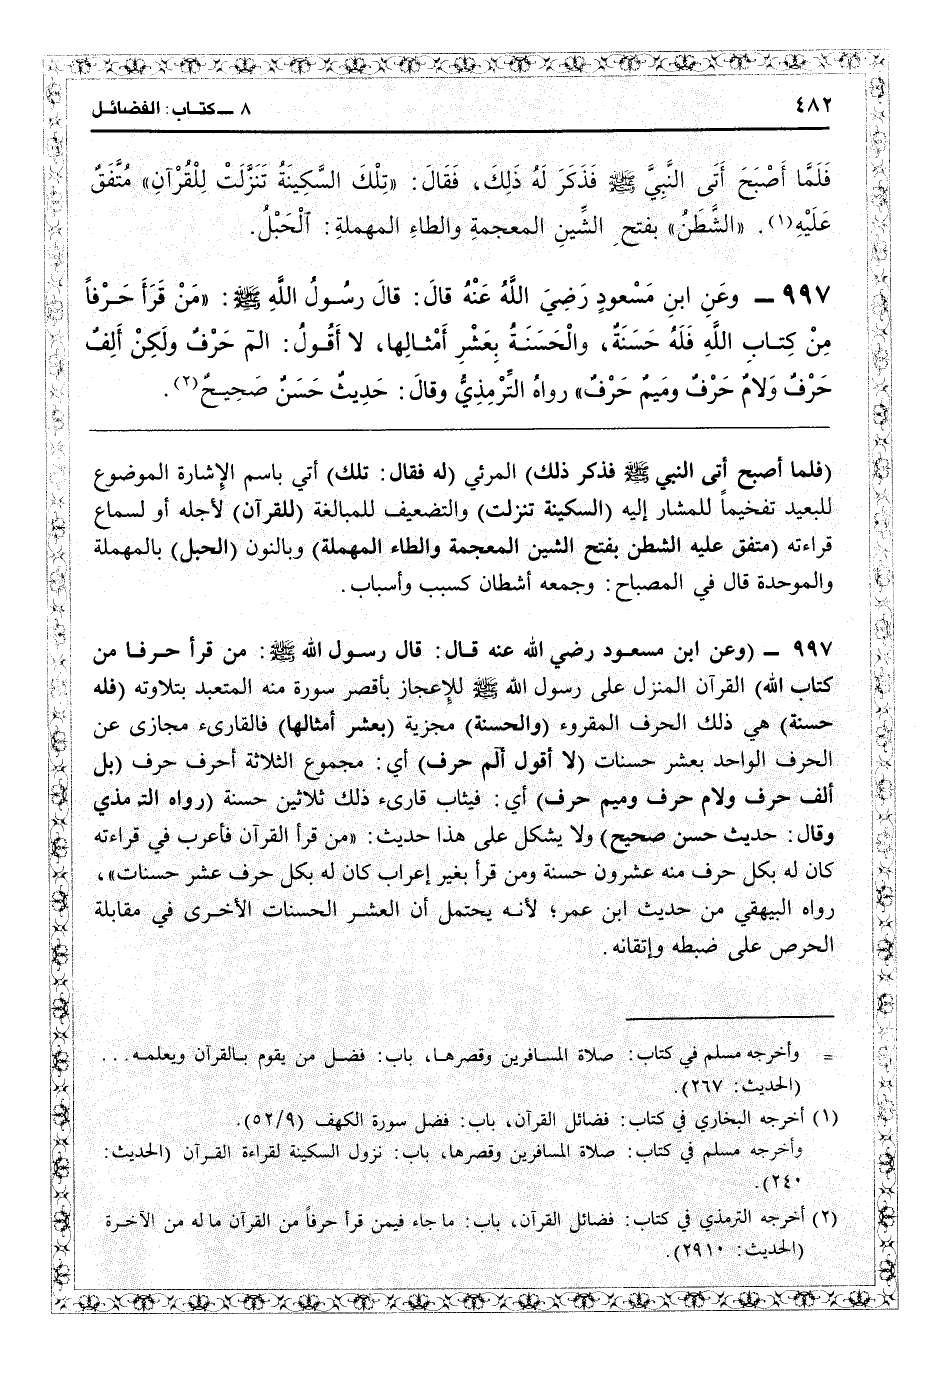 ٤٨٢
٨ ــ كتاب: الفضائل
فَلَمَّا أَصْبَحَ أَتَى النَّبِيَّ ﷺ فَذَكَرَ لَهُ ذَلِكَ، فَقَالَ: «تِلْكَ السَّكِينَةُ تَنَزَّلَتْ لِلْقُرْآنِ» مُتَّفَقٌ
عَلَيْهِ(١). «الشَّطَنُ» بفتح الشِّينِ المعجمةِ والطاءِ المهملةِ: اَلْحَبْلُ.
٩٩٧ ــ وعَنِ ابنِ مَسْعودٍ رَضِيَ اللَّهُ عَنْهُ قالَ: قالَ رسُولُ اللَّهِ ﷺ: «مَنْ قَرَأَ حَرْفاً
مِنْ كِتابِ اللَّهِ فَلَهُ حَسَنَةٌ، والْحَسَنَةُ بِعَشْرِ أَمْثالِها، لا أَقُولُ: الم حَرْفٌ ولَكِنْ أَلِفٌ
حَرْفٌ وَلامٌ حَرْفٌ ومَيمٌ حَرْفٌ» رواهُ التِّرْمِذِيُّ وقالَ: حَدِيثٌ حَسَنٌ صَحِيحٌ(٢).
(فلما أصبح أتى النبي ﷺ فذكر ذلك) المرئي (له فقال: تلك) أتي باسم الإشارة الموضوع
للبعيد تفخيماً للمشار إليه (السكينة تنزلت) والتضعيف للمبالغة (للقرآن) لأجله أو لسماع
قراءته (متفق عليه الشطن بفتح الشين المعجمة والطاء المهملة) وبالنون (الحبل) بالمهملة
والموحدة قال في المصباح: وجمعه أشطان كسبب وأسباب.
٩٩٧ ــ (وعن ابن مسعود رضي الله عنه قال: قال رسول الله ﷺ: من قرأ حرفا من
كتاب الله) القرآن المنزل على رسول الله ﷺ للإعجاز بأقصر سورة منه المتعبد بتلاوته (فله
حسنة) هي ذلك الحرف المقروء (والحسنة) مجزية (بعشر أمثالها) فالقارىء مجازى عن
الحرف الواحد بعشر حسنات (لا أقول ألم حرف) أي: مجموع الثلاثة أحرف حرف (بل
ألف حرف ولام حرف وميم حرف) أي: فيثاب قارىء ذلك ثلاثين حسنة (رواه الترمذي
وقال: حديث حسن صحيح) ولا يشكل على هذا حديث: «من قرأ القرآن فأعرب في قراءته
كان له بكل حرف منه عشرون حسنة ومن قرأ بغير إعراب كان له بكل حرف عشر حسنات»،
رواه البيهقي من حديث ابن عمر؛ لأنه يحتمل أن العشر الحسنات الأخرى في مقابلة
الحرص على ضبطه وإتقانه.
= وأخرجه مسلم في كتاب: صلاة المسافرين وقصرها، باب: فضل من يقوم بالقرآن ويعلمه...
(الحديث: ٢٦٧).
(١) أخرجه البخاري في كتاب: فضائل القرآن، باب: فضل سورة الكهف (٥٢/٩).
وأخرجه مسلم في كتاب: صلاة المسافرين وقصرها، باب: نزول السكينة لقراءة القرآن (الحديث:
٢٤٠).
(٢) أخرجه الترمذي في كتاب: فضائل القرآن، باب: ما جاء فيمن قرأ حرفاً من القرآن ما له من الآخرة
(الحديث: ٢٩١٠).